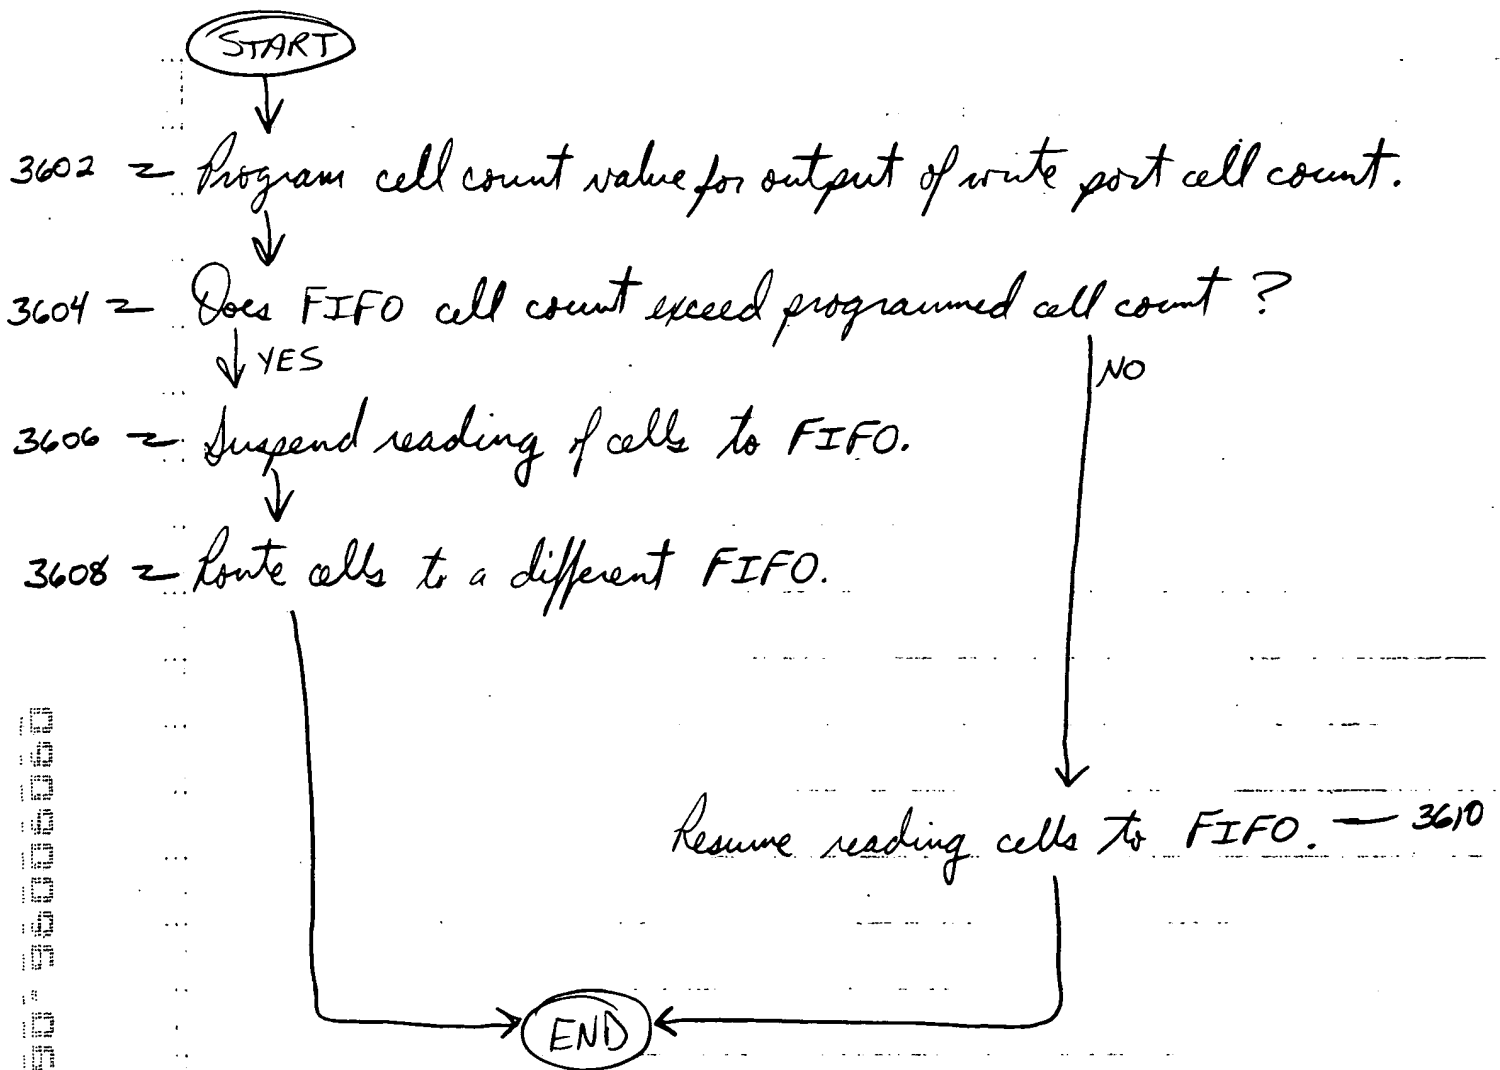 START
3602 Program cell count value for output of write port cell count.
3604 Does FIFO cell count exceed programmed cell count ?
YES
NO
3606 Suspend reading of cells to FIFO.
3608 Route cells to a different FIFO.
Resume reading cells to FIFO. — 3610
END